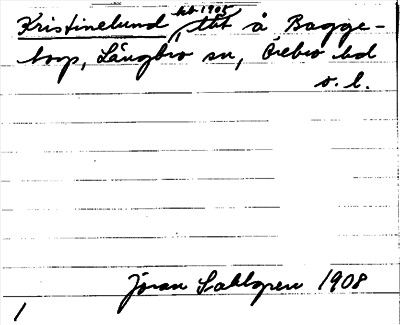 Kristinelund, kb 1905, tbt å Bagge-
torp, Långbro sn, Örebro hd
ö. l.
Jöran Sahlgren 1908
1